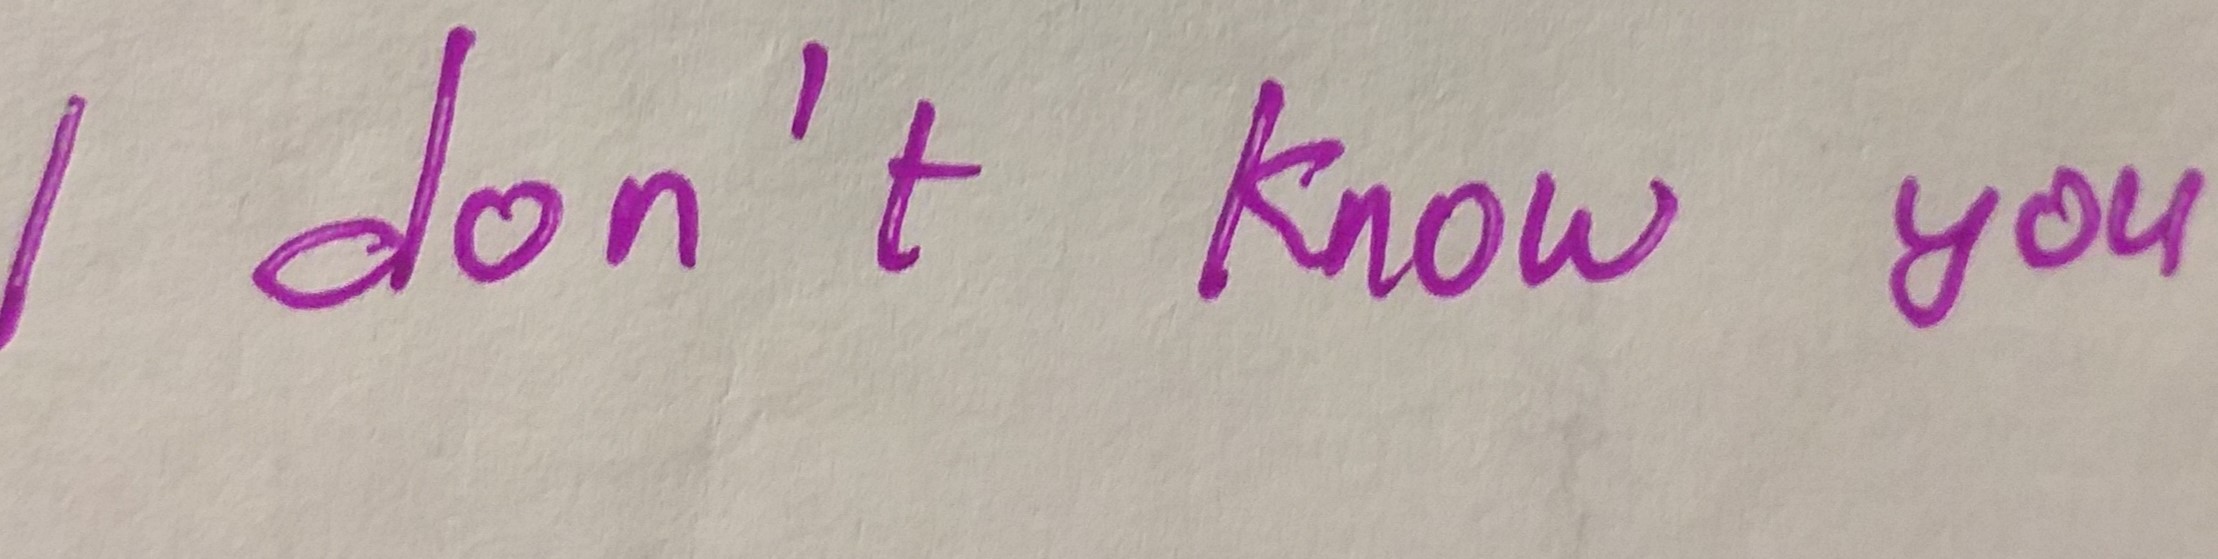 I don't know you